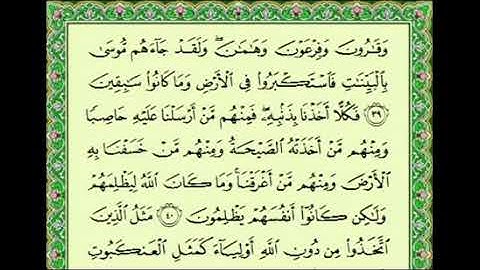 وَقَٰرُونَ وَفِرْعَوْنَ وَهَٰمَٰنَ ۖ وَلَقَدْ جَآءَهُم مُّوسَىٰ
بِٱلْبَيِّنَٰتِ فَٱسْتَكْبَرُوا۟ فِى ٱلْأَرْضِ وَمَا كَانُوا۟ سَٰبِقِينَ
٣٩ فَكُلًّا أَخَذْنَا بِذَنۢبِهِۦ ۖ فَمِنْهُم مَّنْ أَرْسَلْنَا عَلَيْهِ حَاصِبًا
وَمِنْهُم مَّنْ أَخَذَتْهُ ٱلصَّيْحَةُ وَمِنْهُم مَّنْ خَسَفْنَا بِهِ
ٱلْأَرْضَ وَمِنْهُم مَّنْ أَغْرَقْنَا ۚ وَمَا كَانَ ٱللَّهُ لِيَظْلِمَهُمْ
وَلَٰكِن كَانُوٓا۟ أَنفُسَهُمْ يَظْلِمُونَ ٤٠ مَثَلُ ٱلَّذِينَ
ٱتَّخَذُوا۟ مِن دُونِ ٱللَّهِ أَوْلِيَآءَ كَمَثَلِ ٱلْعَنكَبُوتِ